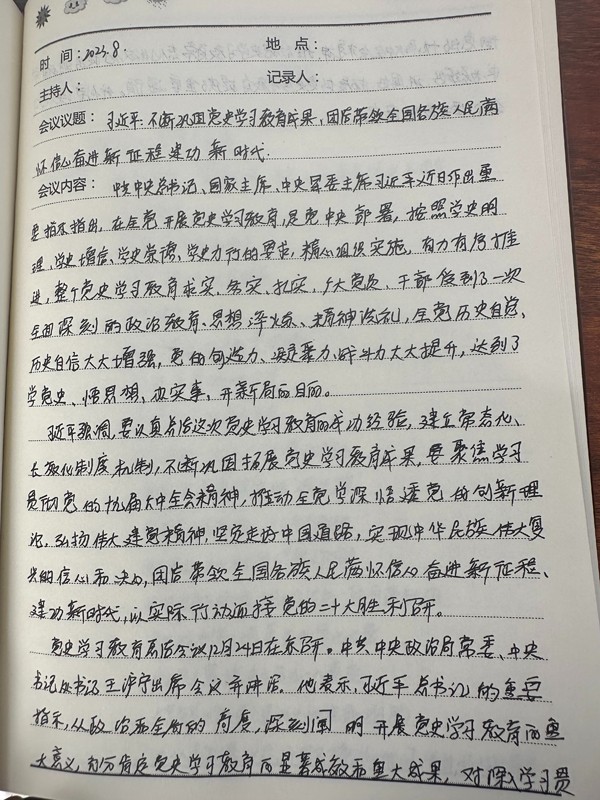 时间：2023.8. 地点：
主持人： 记录人：
会议议题：习近平：不断巩固党史学习教育成果，团结带领全国各族人民满
怀信心奋进新征程建功新时代.
会议内容：中共中央总书记、国家主席、中央军委主席习近平近日作出重
要指示指出，在全党开展党史学习教育，是党中央部署，按照学史明
理、学史增信、学史崇德、学史力行的要求，精心组织实施，有力有序推
进，整个党史学习教育求实、务实、扎实，广大党员、干部受到了一次
全面深刻的政治教育、思想淬炼、精神洗礼，全党历史自觉、
历史自信大大增强，党的创造力、凝聚力、战斗力大大提升，达到了
学党史、悟思想、办实事、开新局的目的。
习近平强调，要认真总结这次党史学习教育的成功经验，建立常态化、
长效化制度机制，不断巩固拓展党史学习教育成果，要聚焦学习
贯彻党的十九届六中全会精神，推动全党学深悟透党的创新理
论，弘扬伟大建党精神，坚定走好中国道路，实现中华民族伟大复
兴的信心和决心，团结带领全国各族人民满怀信心奋进新征程、
建功新时代，以实际行动迎接党的二十大胜利召开。
党史学习教育总结会议12月24日在京召开。中共中央政治局常委、中央
书记处书记王沪宁出席会议并讲话。他表示，习近平总书记的重要
指示，从政治和全局的高度，深刻阐明开展党史学习教育的重
大意义，充分肯定党史学习教育的显著成效和重大成果，对深入学习贯